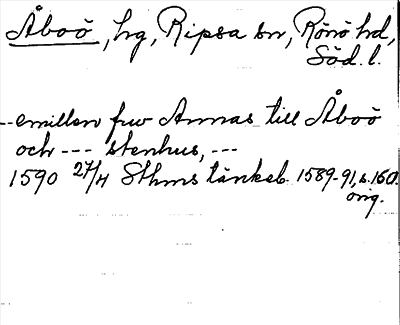 Åboö, hg, Ripsa sn, Rönö hd,
Söd. l.
--emillan fru Annas till Åboö
och --- stenhus, ---
1590 27/4 Sthms tänkeb. 1589-91, s. 160.
orig.